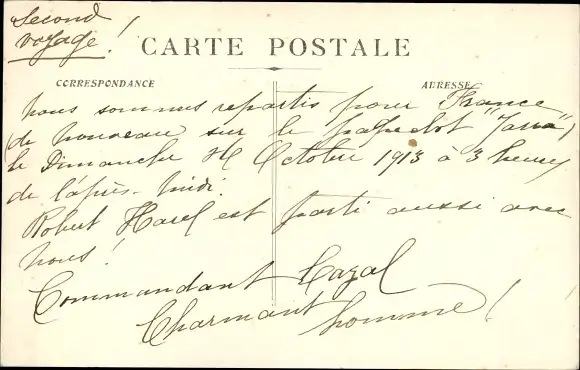 Second
voyage!
CARTE POSTALE
CORRESPONDANCE
ADRESSE
Nous sommes repartis pour France
(de nouveau sur le paquebot "Yarra")
le Dimanche Octobre 1913 à 3 heures
de l'après-midi.
Robert Harel est parti aussi avec
nous!
Commandant Cazal
Charmant homme!